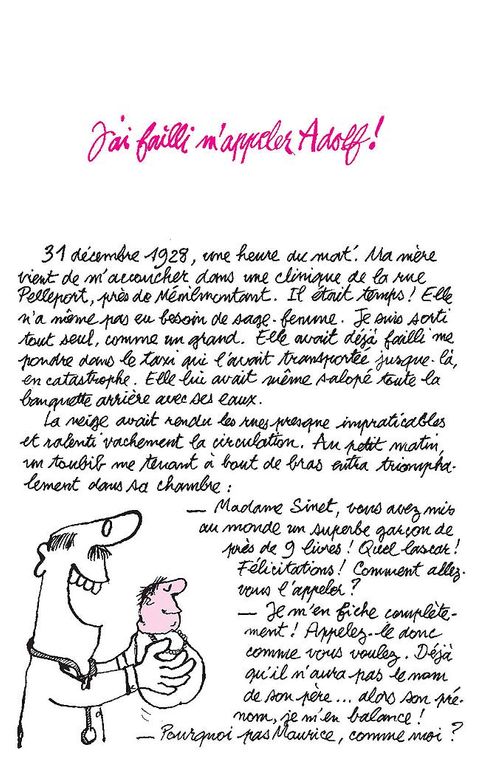 J'ai failli m'appeler Adolf !
31 décembre 1928, une heure du mat'. Ma mère
vient de m'accoucher dans une clinique de la rue
Pelleport, près de Ménilmontant. Il était temps ! Elle
n'a même pas eu besoin de sage-femme. Je suis sorti
tout seul, comme un grand. Elle avait déjà failli me
pondre dans le taxi qui l'avait transportée jusque-là,
en catastrophe. Elle lui avait même salopé toute la
banquette arrière avec ses eaux.
La neige avait rendu les rues presque impraticables
et ralenti vachement la circulation. Au petit matin,
un toubib me tenant à bout de bras entra triompha-
lement dans sa chambre :
— Madame Sinet, vous avez mis
au monde un superbe garçon de
près de 9 livres ! Quel lascar !
Félicitations ! Comment allez-
vous l'appeler ?
— Je m'en fiche complète-
ment ! Appelez-le donc
comme vous voulez. Déjà
qu'il n'aura pas le nom
de son père... alors son pré-
nom, je m'en balance !
— Pourquoi pas Maurice, comme moi ?